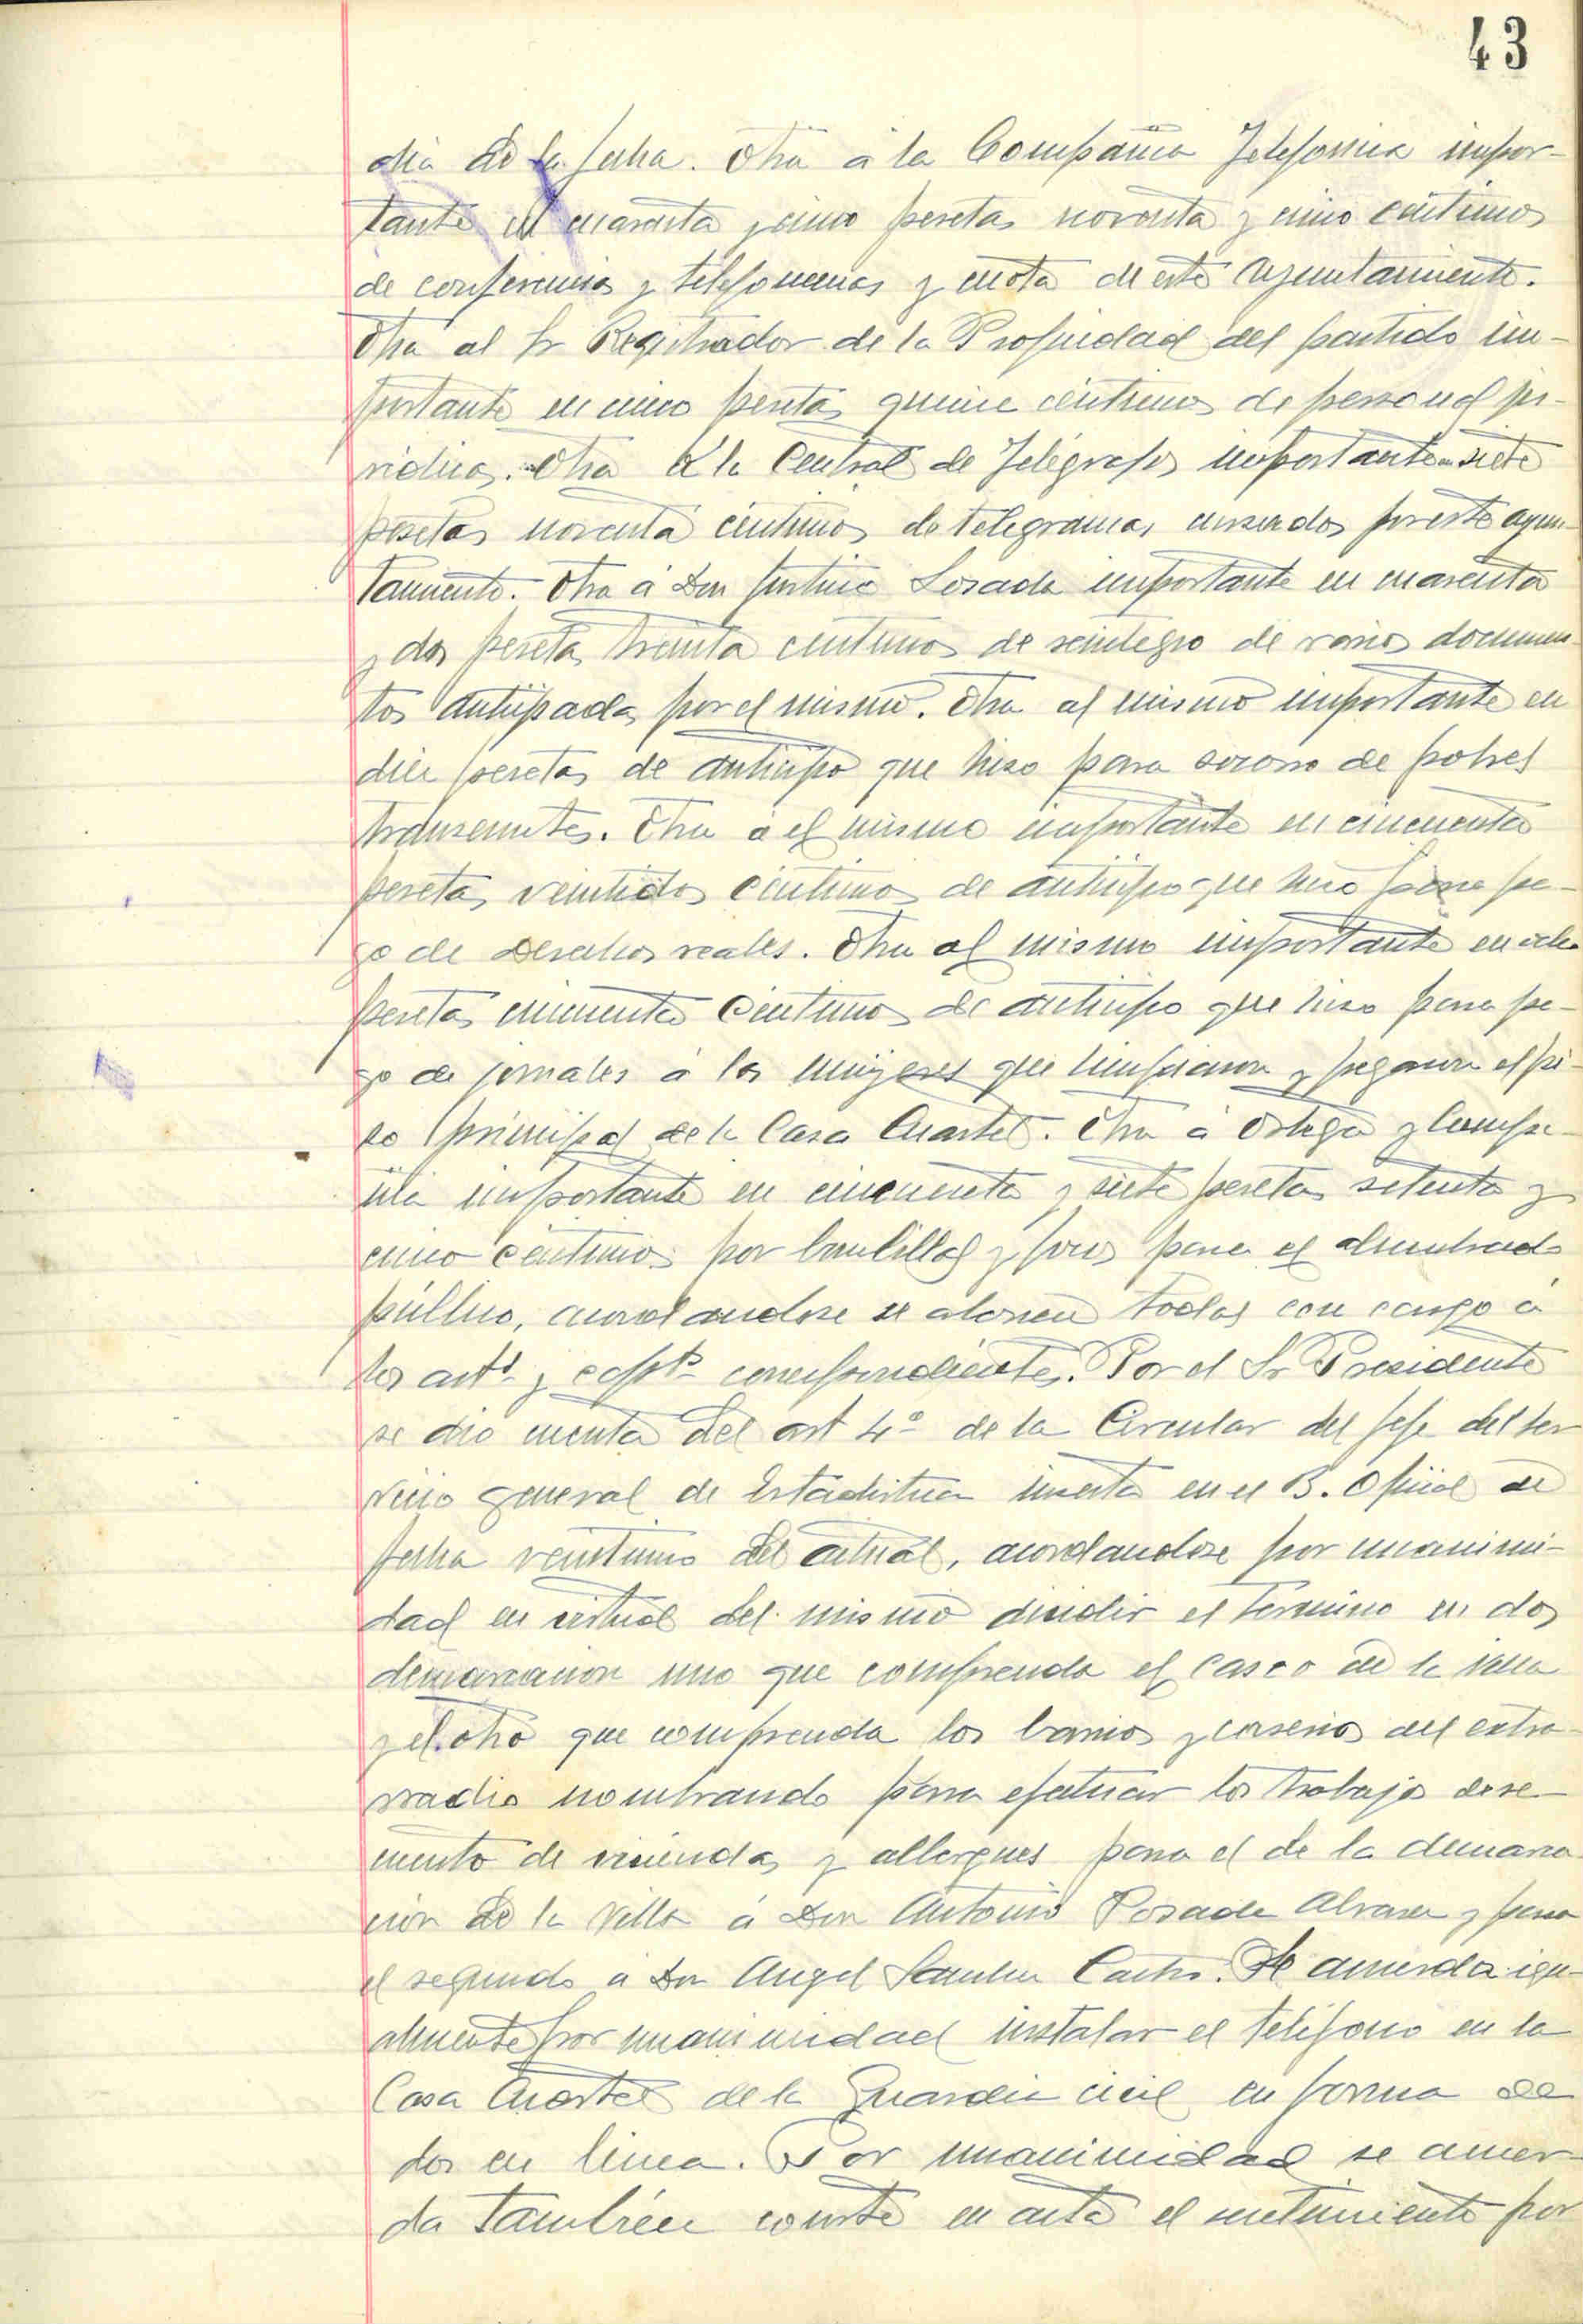 43
dia de la fecha. Otra á la Compañia Telefonica impor-
tante en cuarenta y cinco pesetas noventa y cinco centimos
de conferencias y telefonemas y cuota de este Ayuntamiento.
Otra al Sr Registrador de la Propiedad del partido im-
portante en cinco pesetas quince céntimos de personas ju-
ridicas. Otra á la Central de Telégrafos importante en siete
pesetas noventa céntimos de telegramas cursados por este ayun-
tamiento. Otra á Don Losada importante en cuarenta
y dos pesetas treinta centimos de reintegro de varios documen-
tos antiipada por el mismo. Otra al mismo importante en
diez pesetas de anticipo que hizo para socorro de pobres
transeuntes. Otra á el mismo importante en cincuenta
pesetas veintidos céntimos de anticipo que hizo para pa-
go de Derechos reales. Otra al mismo importante en ocho
pesetas cincuenta céntimos de anticipo que hizo para pa-
go de jornales á las mujeres que limpiaron y fregaron el pi-
so principal de la Casa Cuartel. Otra á Ortega y Compa-
ñia importante en cincuenta y siete pesetas setenta y
cinco céntimos por bombillas y para el alumbrado
público, acordandose se abonen todas con cargo á
los artˢ y captˢ correspondientes. Por el Sr Presidente
se dio cuenta del art 4º de la Circular del Jefe del Ser
vicio general de Estadistica inserta en el B. Oficial de
fecha veintiuno del actual, acordandose por unanimi-
dad en virtud del mismo dividir el termino en dos
demarcacion uno que comprenda el casco de la villa
y el otro que comprenda los barrios y caserios del extra-
rradio nombrando para efectuar los trabajos de re-
cuento de viviendas y albergues para el de la demarca
cion de la Villa á Don Antonio Posada Alvarez y para
el segundo á Don Angel Sanchez Castro. Se acuerda igu-
almente por unanimidad instalar el teléfono en la
Casa Cuartel de la Guardia civil en forma de
dos en linea. Por unanimidad se acuer-
da también conste en acta el sentimiento por